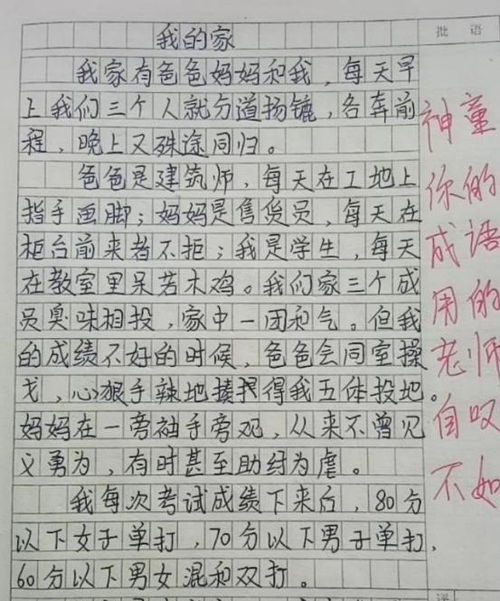 批 语
我的家
我家有爸爸妈妈和我，每天早
上我们三个人就分道扬镳，各奔前
程，晚上又殊途同归。
爸爸是建筑师，每天在工地上
指手画脚；妈妈是售货员，每天在
柜台前来者不拒；我是学生，每天
在教室里呆若木鸡。我们家三个成
员臭味相投，家中一团和气。但我
的成绩不好的时候，爸爸会同室操
戈，心狠手辣地揍得我五体投地。
妈妈在一旁袖手旁观，从来不曾见
义勇为，有时甚至助纣为虐。
我每次考试成绩下来后，80分
以下女子单打，70分以下男子单打，
60分以下男女混和双打。
神童
你的
成语
用的
老师
自叹
不如